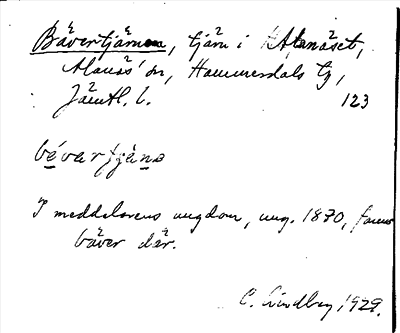 Bävertjärnen, tjärn i Alanäset,
Alanäs' sn, Hammerdals tg,
Jämtl. l. 123
bévartjàna
I meddelarens ungdom, ung. 1870, fanns
bäver där.
C. Lindberg 1929.